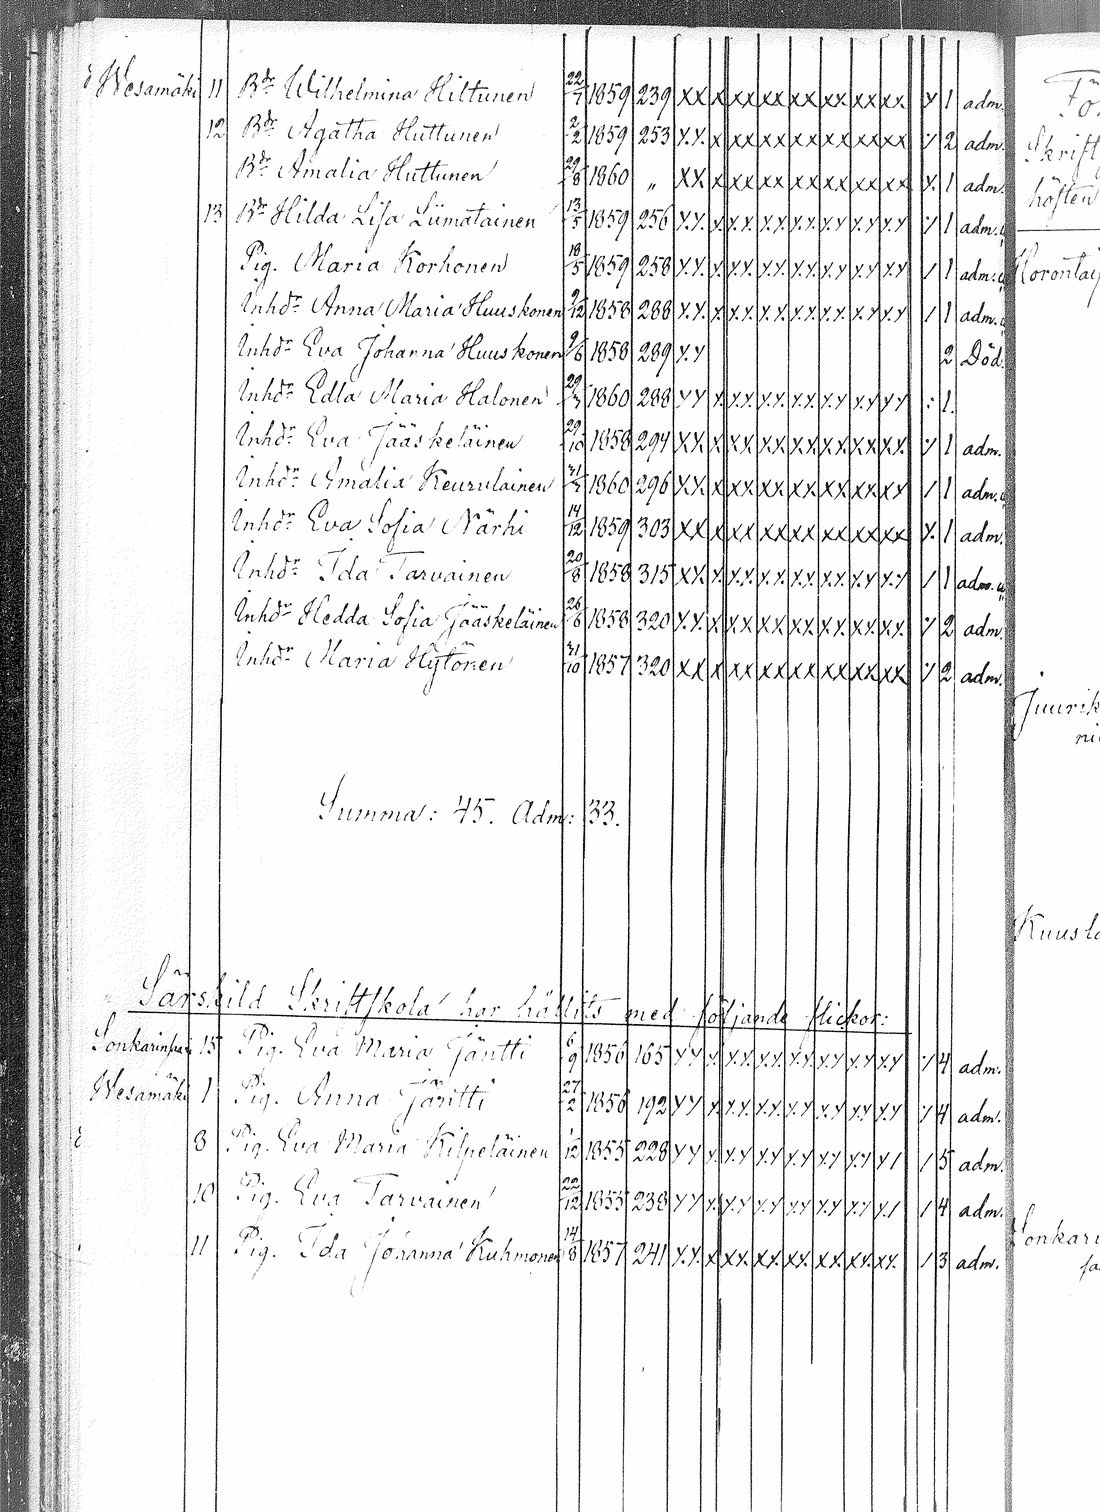 Wesamäki 11 Bdr Wilhelmina Hiltunen 22/7 1859 239 xx x xx xx xx xx xx xx x 1 adm.
12 Bdr Agatha Huttunen 2/2 1859 253 x.x. x xx xx xx xx xx xx / 2 adm.
Bdr Amalia Huttunen 29/8 1860 „ xx x xx xx xx xx xx xx x. 1 adm.
13 Bdr Hilda Lisa Liimatainen 13/5 1859 256 x.x. x x.x. x.x. x.x. x.x. x.x. x.x. / 1 adm.
Pig. Maria Korhonen 18/5 1859 258 x.x. x x.x. x.x. x.x. x.x. x.x. x.x. / 1 adm.
Inhdr Anna Maria Huuskonen 9/12 1858 288 x.x. x x.x. x.x. x.x. x.x. x.x. x.x. / 1 adm.
Inhdr Eva Johanna Huuskonen 9/6 1858 289 x.x 2 Död.
Inhdr Edla Maria Halonen 29/7 1860 288 xx x x.x. x.x. x.x. x.x x.x xx : 1.
Inhdr Eva Jääskeläinen 29/10 1858 294 xx x xx xx xx xx xx xx / 1 adm.
Inhdr Amalia Keurulainen 31/7 1860 296 xx x xx xx xx xx xx xx / 1 adm.
Inhdr Eva Sofia Närhi 14/12 1859 303 xx x xx xx xx xx xx xx x. 1 adm.
Inhdr Ida Tarvainen 20/8 1858 315 xx x x.x. x.x. x.x. x.x. x.x x.x / 1 adm.
Inhdr Hedda Sofia Jääskeläinen 26/6 1858 320 x.x. x xx xx xx xx xx xx / 2 adm.
Inhdr Maria Hytönen 31/10 1857 320 xx x xx xx xx xx xx xx / 2 adm.
Summa: 45. Adm: 33.
Särskild Skriftskola har hållits med följande flickor:
15 Pig. Eva Maria Jäntti 6/9 1856 165 xx x x.x. x.x. x.x. x.x. x.x. x.x / 4 adm.
Wesamäki 1 Pig. Anna Jäntti 27/2 1856 192 xx x x.x. x.x. x.x. x.x x.x x.x / 4 adm.
8 Pig. Eva Maria Kilpeläinen 1/12 1855 228 xx x x.x x.x x.x x.x x.x x1 / 5 adm.
10 Pig. Eva Tarvainen 22/12 1855 238 xx x x.x x.x x.x x.x x.x x.1 / 4 adm.
11 Pig. Ida Johanna Kuhmonen 14/8 1857 241 x.x. x xx. xx. xx. xx. xx. xx. / 3 adm.
Skrift
hösten
Kuusla
Sonkari